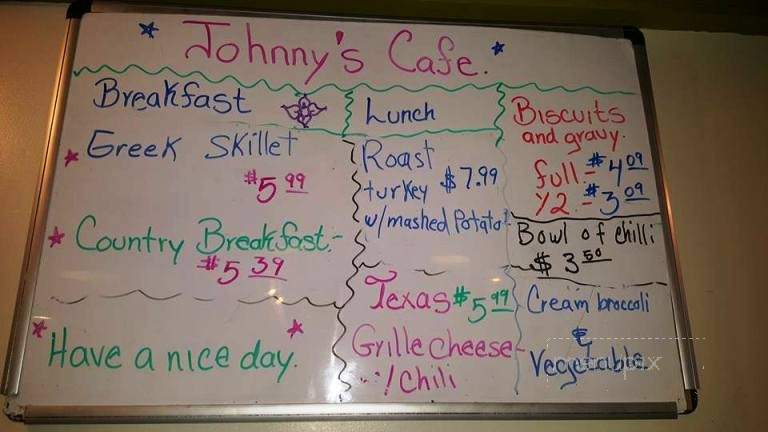 Johnny's Cafe.
Breakfast
Greek Skillet
$5 99
Country Breakfast.-
$5 39
Have a nice day.
Lunch
Roast
turkey $7.99
w/mashed Potato
Texas $5 99
Grille cheese-
w/ Chili
Biscuits
and gravy.
full.- $4 09
1/2.- $3 09
Bowl of chilli
$3 50
Cream broccoli
&
Vegetable